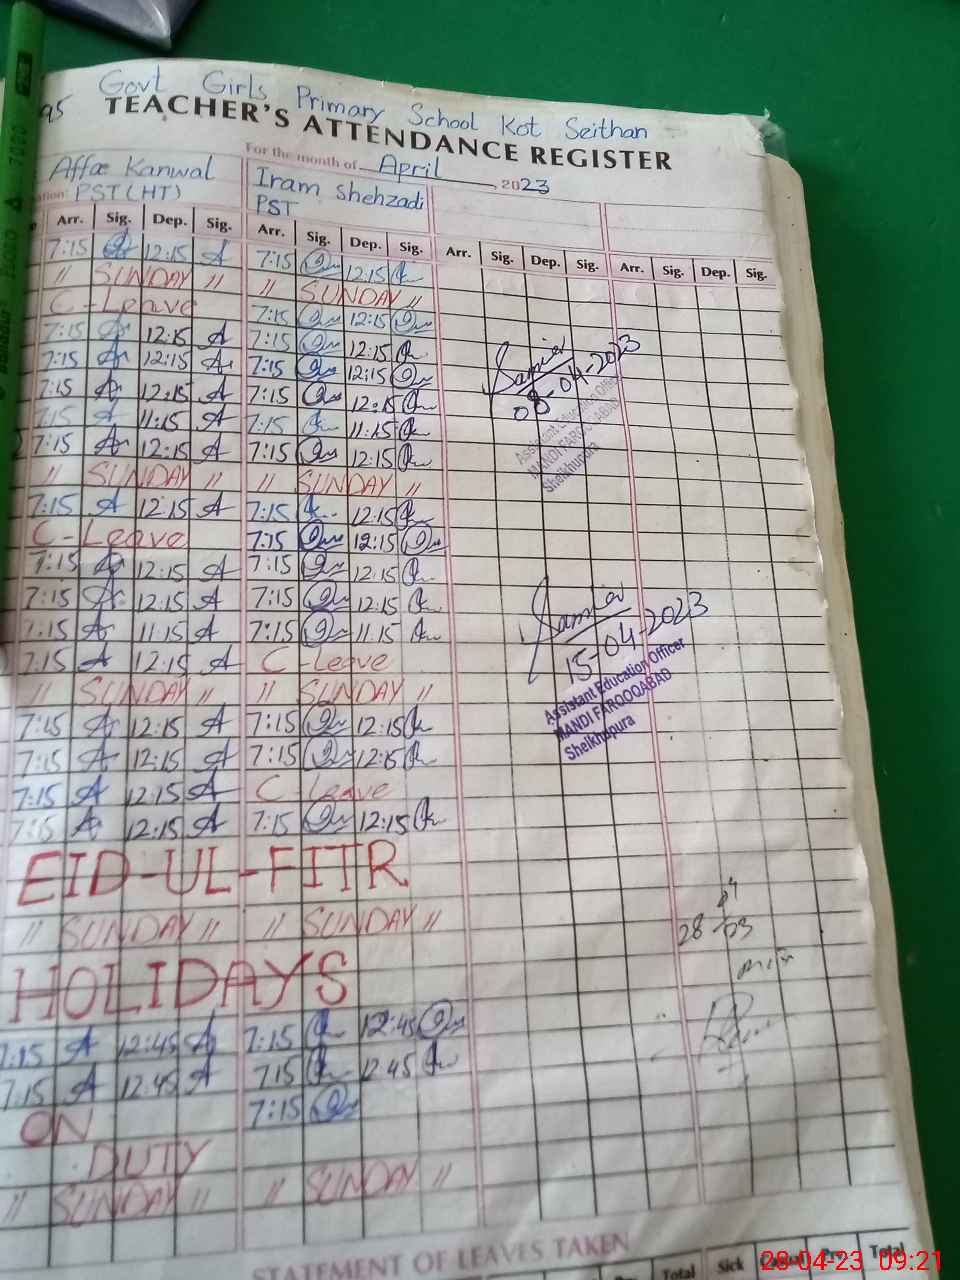 Govt Girls Primary School Kot Seithan
95 TEACHER'S ATTENDANCE REGISTER
For the month of April, 2023
Affae Kanwal Iram Shehzadi
PST (HT) PST
Arr. Sig. Dep. Sig. Arr. Sig. Dep. Sig. Arr. Sig. Dep. Sig. Arr. Sig. Dep. Sig.
7:15 12:15 A 7:15 12:15
" SUNDAY " " SUNDAY "
C-Leave 7:15 12:15
7:15 12:15 A 7:15 12:15
7:15 12:15 A 7:15 12:15
7:15 12:15 A 7:15 12:15
7:15 A 11:15 A 7:15 11:15
7:15 12:15 A 7:15 12:15
" SUNDAY " " SUNDAY "
7:15 A 12:15 A 7:15 12:15
C-Leave 7:15 12:15
7:15 12:15 A 7:15 12:15
7:15 12:15 A 7:15 12:15
7:15 11:15 A 7:15 11:15
7:15 A 12:15 A C-Leave
" SUNDAY " " SUNDAY "
7:15 12:15 A 7:15 12:15
7:15 A 12:15 A 7:15 12:15
7:15 A 12:15 A C-Leave
7:15 A 12:15 A 7:15 12:15
EID-UL-FITR
" SUNDAY " " SUNDAY "
HOLIDAYS
7:15 A 12:45 A 7:15 12:45
7:15 A 12:45 A 7:15 12:45
ON 7:15
DUTY
" SUNDAY " " SUNDAY "
STATEMENT OF LEAVES TAKEN
Total Sick Casual Prv. Total
Samia
08-04-2023
Assistant Education Officer
MANDI FAROOQABAD
Sheikhupura
Samia
15-04-2023
Assistant Education Officer
MANDI FAROOQABAD
Sheikhupura
28 04 23
28-04-23 09:21